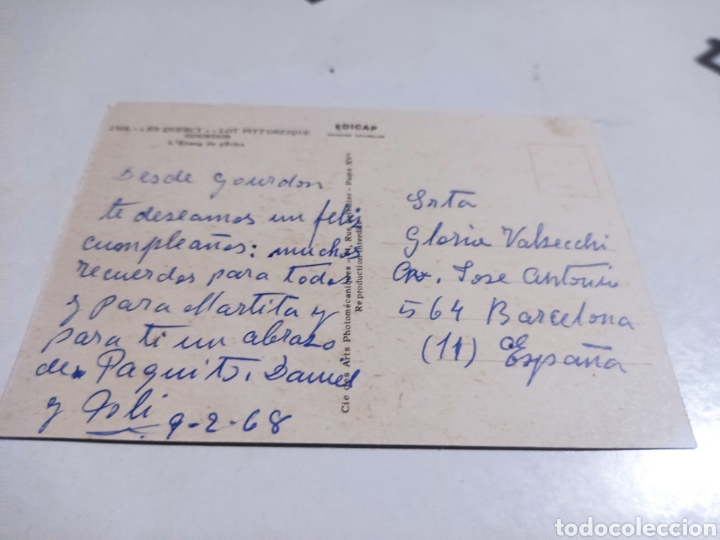 EN QUERCY... LOT PITTORESQUE
GOURDON
L'Etang de pêche
EDICAP
Desde Gourdon
te deseamos un feliz
cumpleaños: muchos
recuerdos para todos
y para Martita y
para ti un abrazo
de Paquito, Daniel
y Loli
9-2-68
Cie des Arts Photomécaniques
Rue
Paris XVe
Reproduction interdite
Srta
Gloria Valsecchi
Av. Jose Antonio
564 Barcelona
(11)
España
todocoleccion